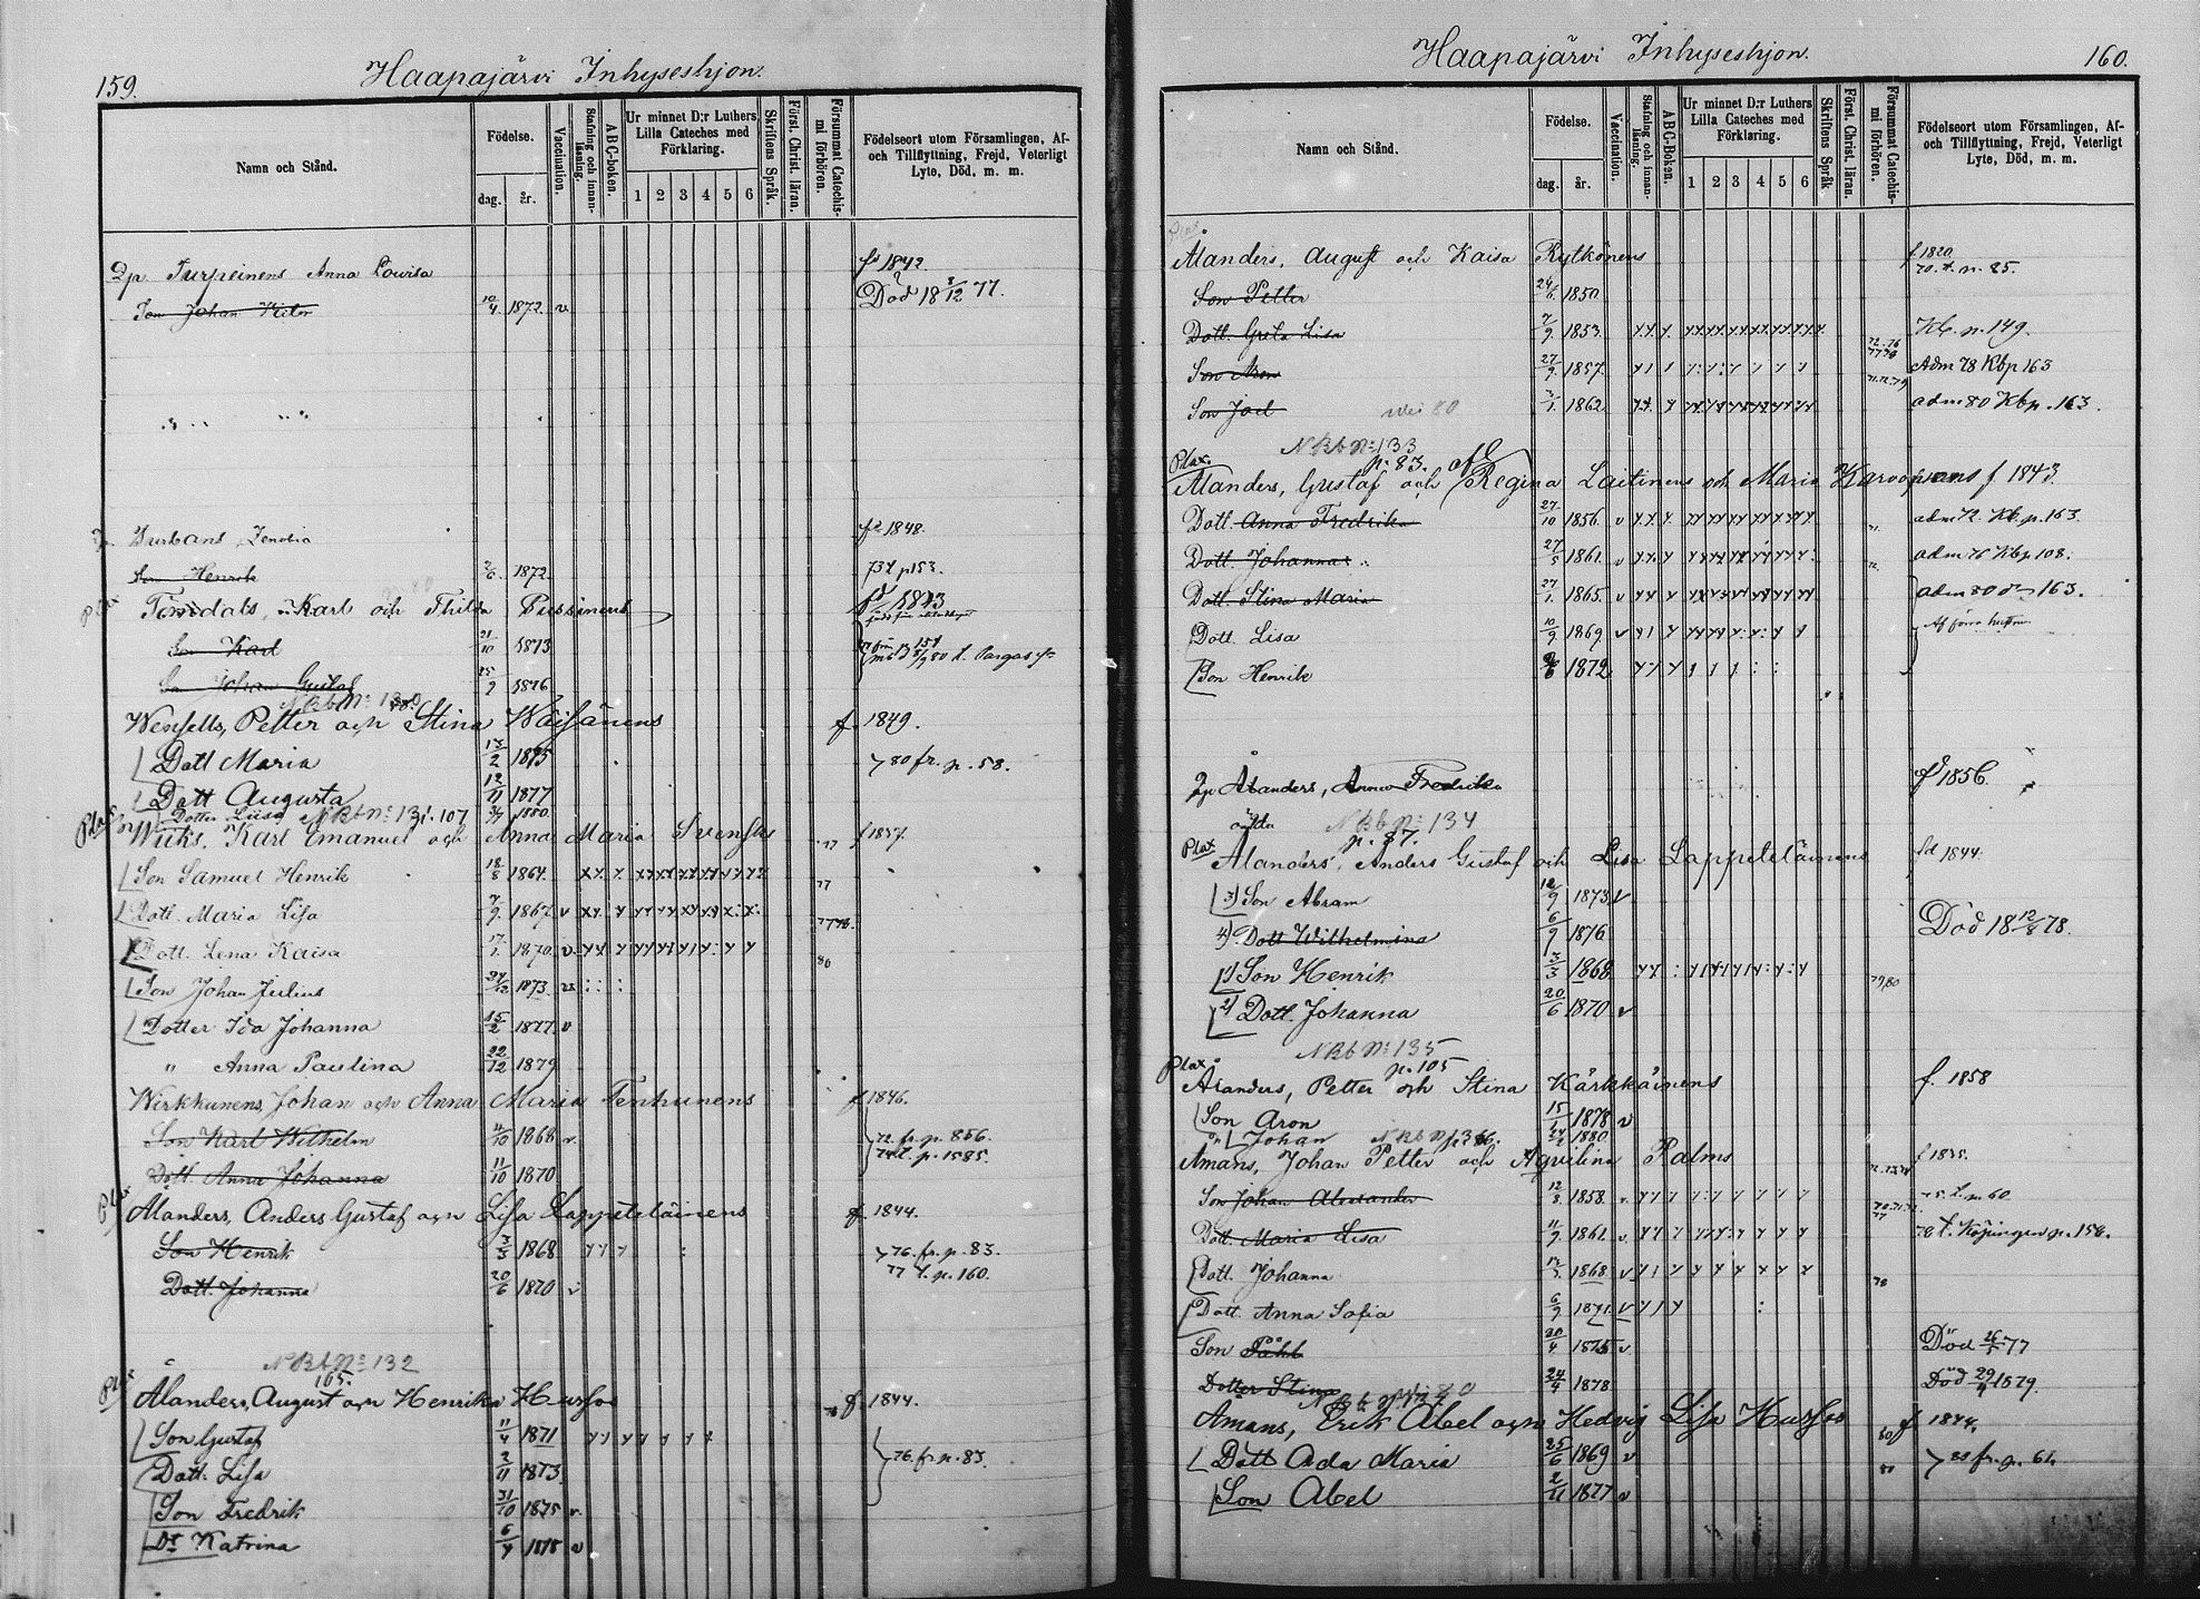 159.
Haapajärvi Inhyseshjon.
Namn och Stånd.
Födelse.
dag.
år.
Vaccination.
Stafning och innanläsning.
ABC-boken.
Ur minnet D:r Luthers Lilla Cateches med Förklaring.
1 2 3 4 5 6
Skriftens Språk.
Först. Christ. läran.
Försummat Catechismi förhören.
Födelseort utom Församlingen, Af- och Tillflyttning, Frejd, Veterligt Lyte, Död, m. m.
Qp Turpeinens Anna Lovisa 1842.
Son Johan 10/4 1872 v Död 18 3/12 77.
Zenobia 1848.
Son Henrik 1872. p 153.
Karl och Thilda Pussinens
Son Karl 21/10 1873
Son Johan Gustaf 25/9 1876
N Kb No: 130
Wensells, Petter och Stina Wäisänens f. 1849.
Dott Maria 13/2 1875 80 fr. p. 58.
Dott Augusta 12/11 1877
Dotter Lisa 1880 N Kb No: 131. 107
Wiiks, Karl Emanuel och Anna Maria Svensks f 1837.
Son Samuel Henrik 18/8 1864. 77
Dott. Maria Lisa 7/9 1867. v
Dott. Lena Kaisa 17/1 1870. v 80
Son Johan Julius 24/12 1873
Dotter Ida Johanna 15/2 1877 v
" Anna Paulina 22/12 1879
Wirkkunens, Johan och Anna Maria Tenhunens f. 1846.
Son Karl Wilhelm 4/10 1868 v. 72. fr. p. 856.
Dott. Anna Johanna 11/10 1870 74 t. p. 1585.
Ålanders, Anders Gustaf och Lisa Lappeteläinens f. 1844.
Son Henrik 3/3 1868 76. fr. p. 83.
Dott. Johanna 20/6 1870 v 77 t. p. 160.
N Kb No: 132
165.
Ålanders, August och Henrika Hussos f. 1844.
Son Gustaf 11/4 1871
Dott. Lisa 2/11 1873 76. fr p. 83.
Son Fredrik 31/10 1875 v.
Dr Katrina 6/4 1878 v
Haapajärvi Inhyseshjon.
160.
Namn och Stånd.
Födelse.
dag.
år.
Vaccination.
Stafning och innanläsning.
ABC-Boken.
Ur minnet D:r Luthers Lilla Cateches med Förklaring.
1 2 3 4 5 6
Skriftens Språk
Först. Christ. läran.
Försummat Catechismi förhören.
Födelseort utom Församlingen, Af- och Tillflyttning, Frejd, Veterligt Lyte, Död, m. m.
Ålanders, August och Kaisa Rytkönens f. 1820
70. t. p. 85.
Son Petter 24/6 1850
Dott. Greta Lisa 7/9 1853. Kb. p. 149.
Son Aron 27/9 1857. Adm 78 Kbp 163
Son Joel 3/1 1862 adm 80 Kbp. 163.
N Kb No: 133
p. 83.
Plax.
Ålanders, Gustaf och Regina Laitinens och Maria Karvoppanens f 1843.
Dott. Anna Fredrika 27/10 1856. v adm 72. Kb. p. 163.
Dott. Johanna 27/5 1861. v adm 76 Kbp 108.
Dott. Stina Maria 27/1 1865. v adm 80 do 163.
Dott. Lisa 10/9 1869. v Af förra hustrun
Son Henrik 1872
Qp Ålanders, Anna Fredrika 1856
N Kb No: 134
p. 87.
Plax
Ålanders, Anders Gustaf och Lisa Lappeteläinens 1844
3) Son Abram 12/9 1873 v
4) Dott Wilhelmina 6/9 1876 Död 18 12/8 78.
1) Son Henrik 3/3 1868 79,80
2) Dott. Johanna 20/6 1870 v
N Kb No: 135
p. 105
Plax.
Ålanders, Petter och Stina Kärkkäinens f. 1858
Son Aron 15/1 1878 v
Johan 1880 N Kb No 136.
Åmans, Johan Petter och Aqvilina Palms f 1835.
Son Johan Alexander 12/8 1858. 75. t. p 60
Dott. Maria Lisa 11/9 1861. v. 78 t. Köpingen p. 156.
Dott. Johanna 1868 v 78
Dott. Anna Sofia 6/9 1871. v
Son Påhl 20/4 1875 v Död 26/1 77
Dotter Stina 24/4 1878 Död 29/4 1879.
Åmans, Erik Abel och Hedvig Lisa Hussos f 1844.
Dott Ada Maria 25/6 1869 v 80 fr. p. 61.
Son Abel 2/11 1877 v